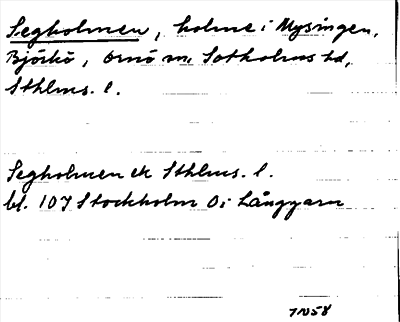 Segholmen, holme i Mysingen,
Björkö, Ornö sn, Sotholms hd,
Sthlms. l.
Segholmen ek Sthlms. l.
bl. 107 Stockholm Oi Långgarn
7N58